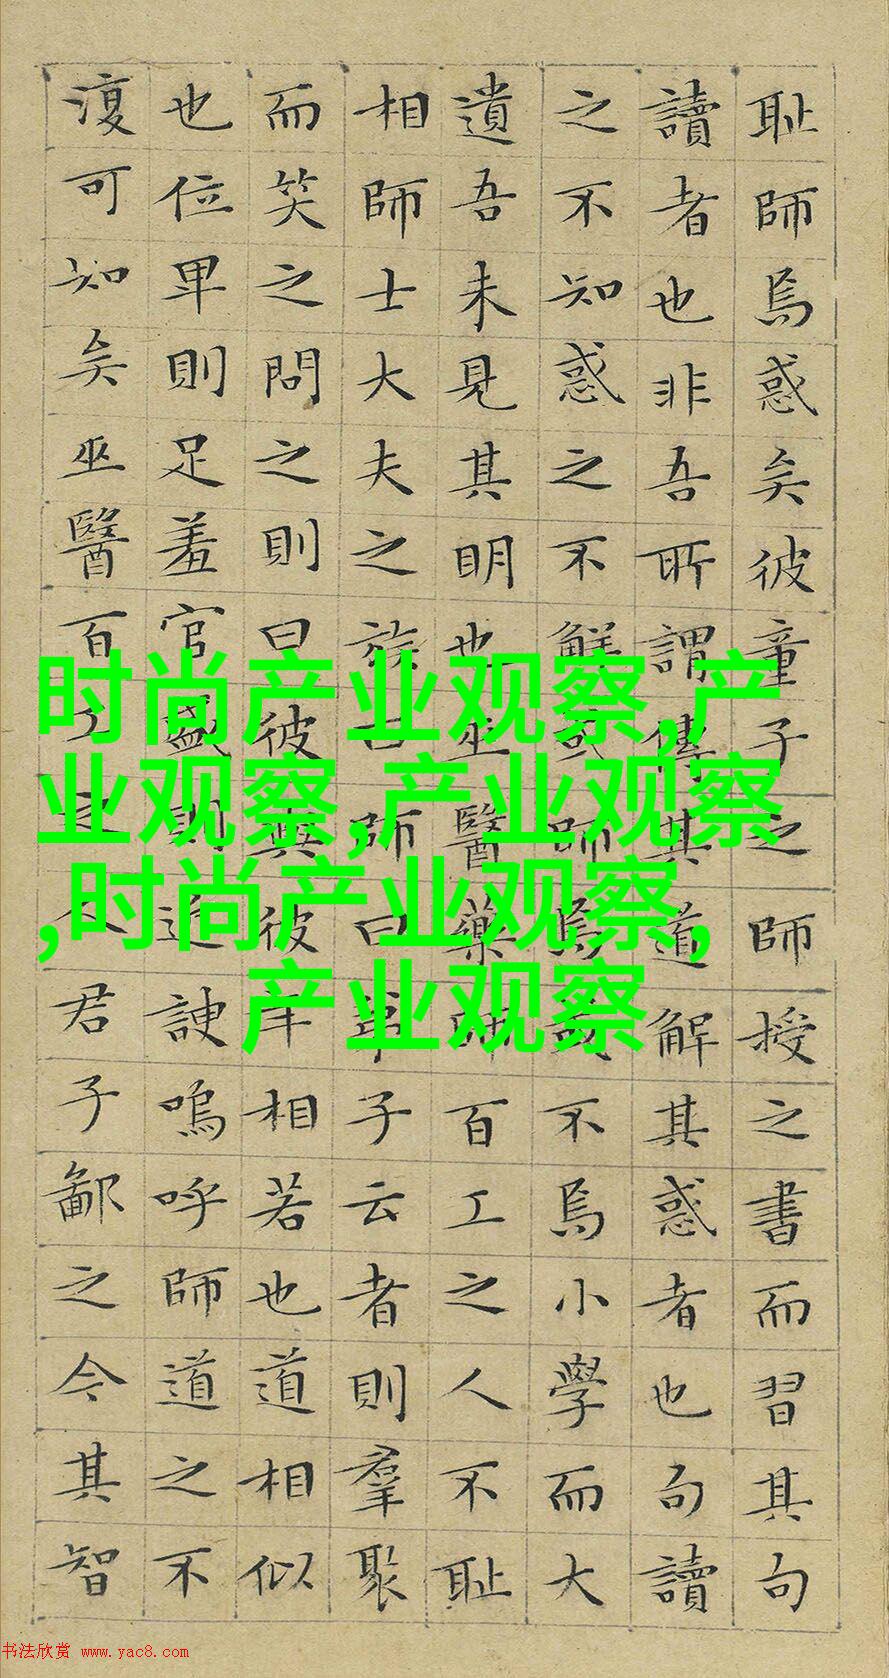 耻師焉惑矣彼童子之師授之書而習其句
讀者也非吾所謂傳其道解其惑者也句讀
之不知惑之不解或師焉或不焉小學而大
遺吾未見其明也巫醫藥師百工之人不耻
相師士大夫之族曰師曰弟子云者則羣聚
而笑之問之則曰彼與彼年相若也道相似
也位卑則足羞官盛則近諛嗚呼師道之不
復可知矣巫醫百工之人君子鄙之今其智
时尚产业观察,产
业观察,产业观察
,时尚产业观察,
产业观察
书法欣赏 www.yac8.com